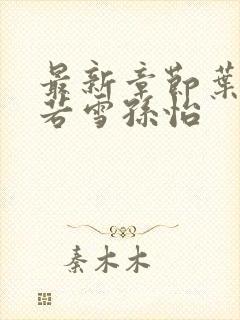 最新章节葉
若雪孫怡
秦木木